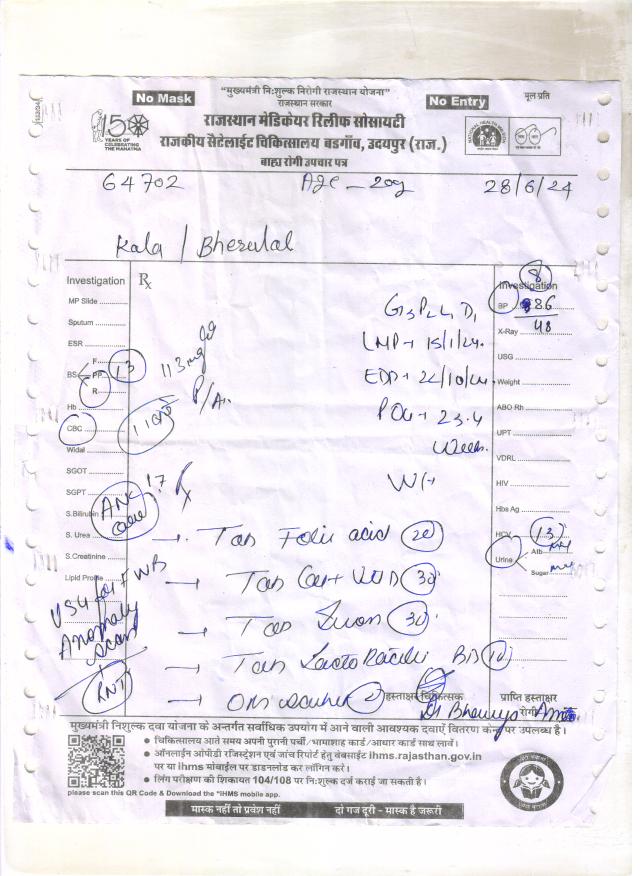 "मुख्यमंत्री नि:शुल्क निरोगी राजस्थान योजना"
राजस्थान सरकार
मूल प्रति
No Mask
No Entry
150 YEARS OF CELEBRATING THE MAHATMA
राजस्थान मेडिकेयर रिलीफ सोसायटी
राजकीय सेटेलाईट चिकित्सालय बडगाँव, उदयपुर (राज.)
बाह्य रोगी उपचार पत्र
64702 Age - 20y 28/6/24
Kala / Bherulal
Investigation
MP Slide
Sputum
ESR
BS F. PP 13 R.
Hb
CBC
Widal
SGOT
SGPT
S.Bilirubin
S. Urea
S.Creatinine
Lipid Profile
ANC
USG for FWB
Anomaly scan
Rx
113 mg
P/A
LMP → 15/1/24
EDD → 22/10/24
POG → 23.4
Week
Rx
→ Tab Folic acid 20
→ Tab 30
→ Tab 30
→ Tab BD 10
→ ORS
8
Investigation
BP 86
48
X-Ray
USG
Weight
ABO Rh
UPT
VDRL
HIV
Hbs Ag
HCV
13
Urine Alb Nil
Sugar Nil
हस्ताक्षर चिकित्सक
प्राप्ति हस्ताक्षर
रोगी
मुख्यमंत्री निशुल्क दवा योजना के अन्तर्गत सर्वाधिक उपयोग में आने वाली आवश्यक दवाऐं वितरण केन्द्र पर उपलब्ध है।
• चिकित्सालय आते समय अपनी पुरानी पर्ची/भामाशाह कार्ड/आधार कार्ड साथ लावें।
• ऑनलाईन ओपीडी रजिस्ट्रेशन एवं जांच रिपोर्ट हेतु वेबसाईट ihms.rajasthan.gov.in
पर या ihms मोबाईल पर डाडनलोड कर लॉगिन करे।
• लिंग परीक्षण की शिकायत 104/108 पर नि:शुल्क दर्ज कराई जा सकती है।
please scan this QR Code & Download the *IHMS mobile app.
मास्क नहीं तो प्रवेश नहीं
दो गज दूरी - मास्क है जरूरी